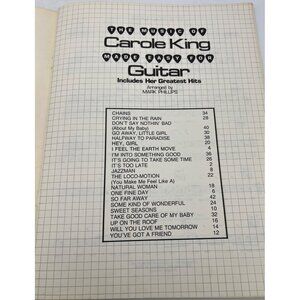 THE MUSIC OF
Carole King
MADE EASY FOR
Guitar
Includes Her Greatest Hits
Arranged by
MARK PHILLIPS
CHAINS 34
CRYING IN THE RAIN 28
DON'T SAY NOTHIN' BAD
(About My Baby) 40
GO AWAY, LITTLE GIRL 30
HALFWAY TO PARADISE 38
HEY, GIRL 20
I FEEL THE EARTH MOVE 4
I'M INTO SOMETHING GOOD 36
IT'S GOING TO TAKE SOME TIME 26
IT'S TOO LATE 2
JAZZMAN 8
THE LOCO-MOTION 22
(You Make Me Feel Like A)
NATURAL WOMAN 18
ONE FINE DAY 6
SO FAR AWAY 42
SOME KIND OF WONDERFUL 24
SWEET SEASONS 10
TAKE GOOD CARE OF MY BABY 32
UP ON THE ROOF 16
WILL YOU LOVE ME TOMORROW 14
YOU'VE GOT A FRIEND 12